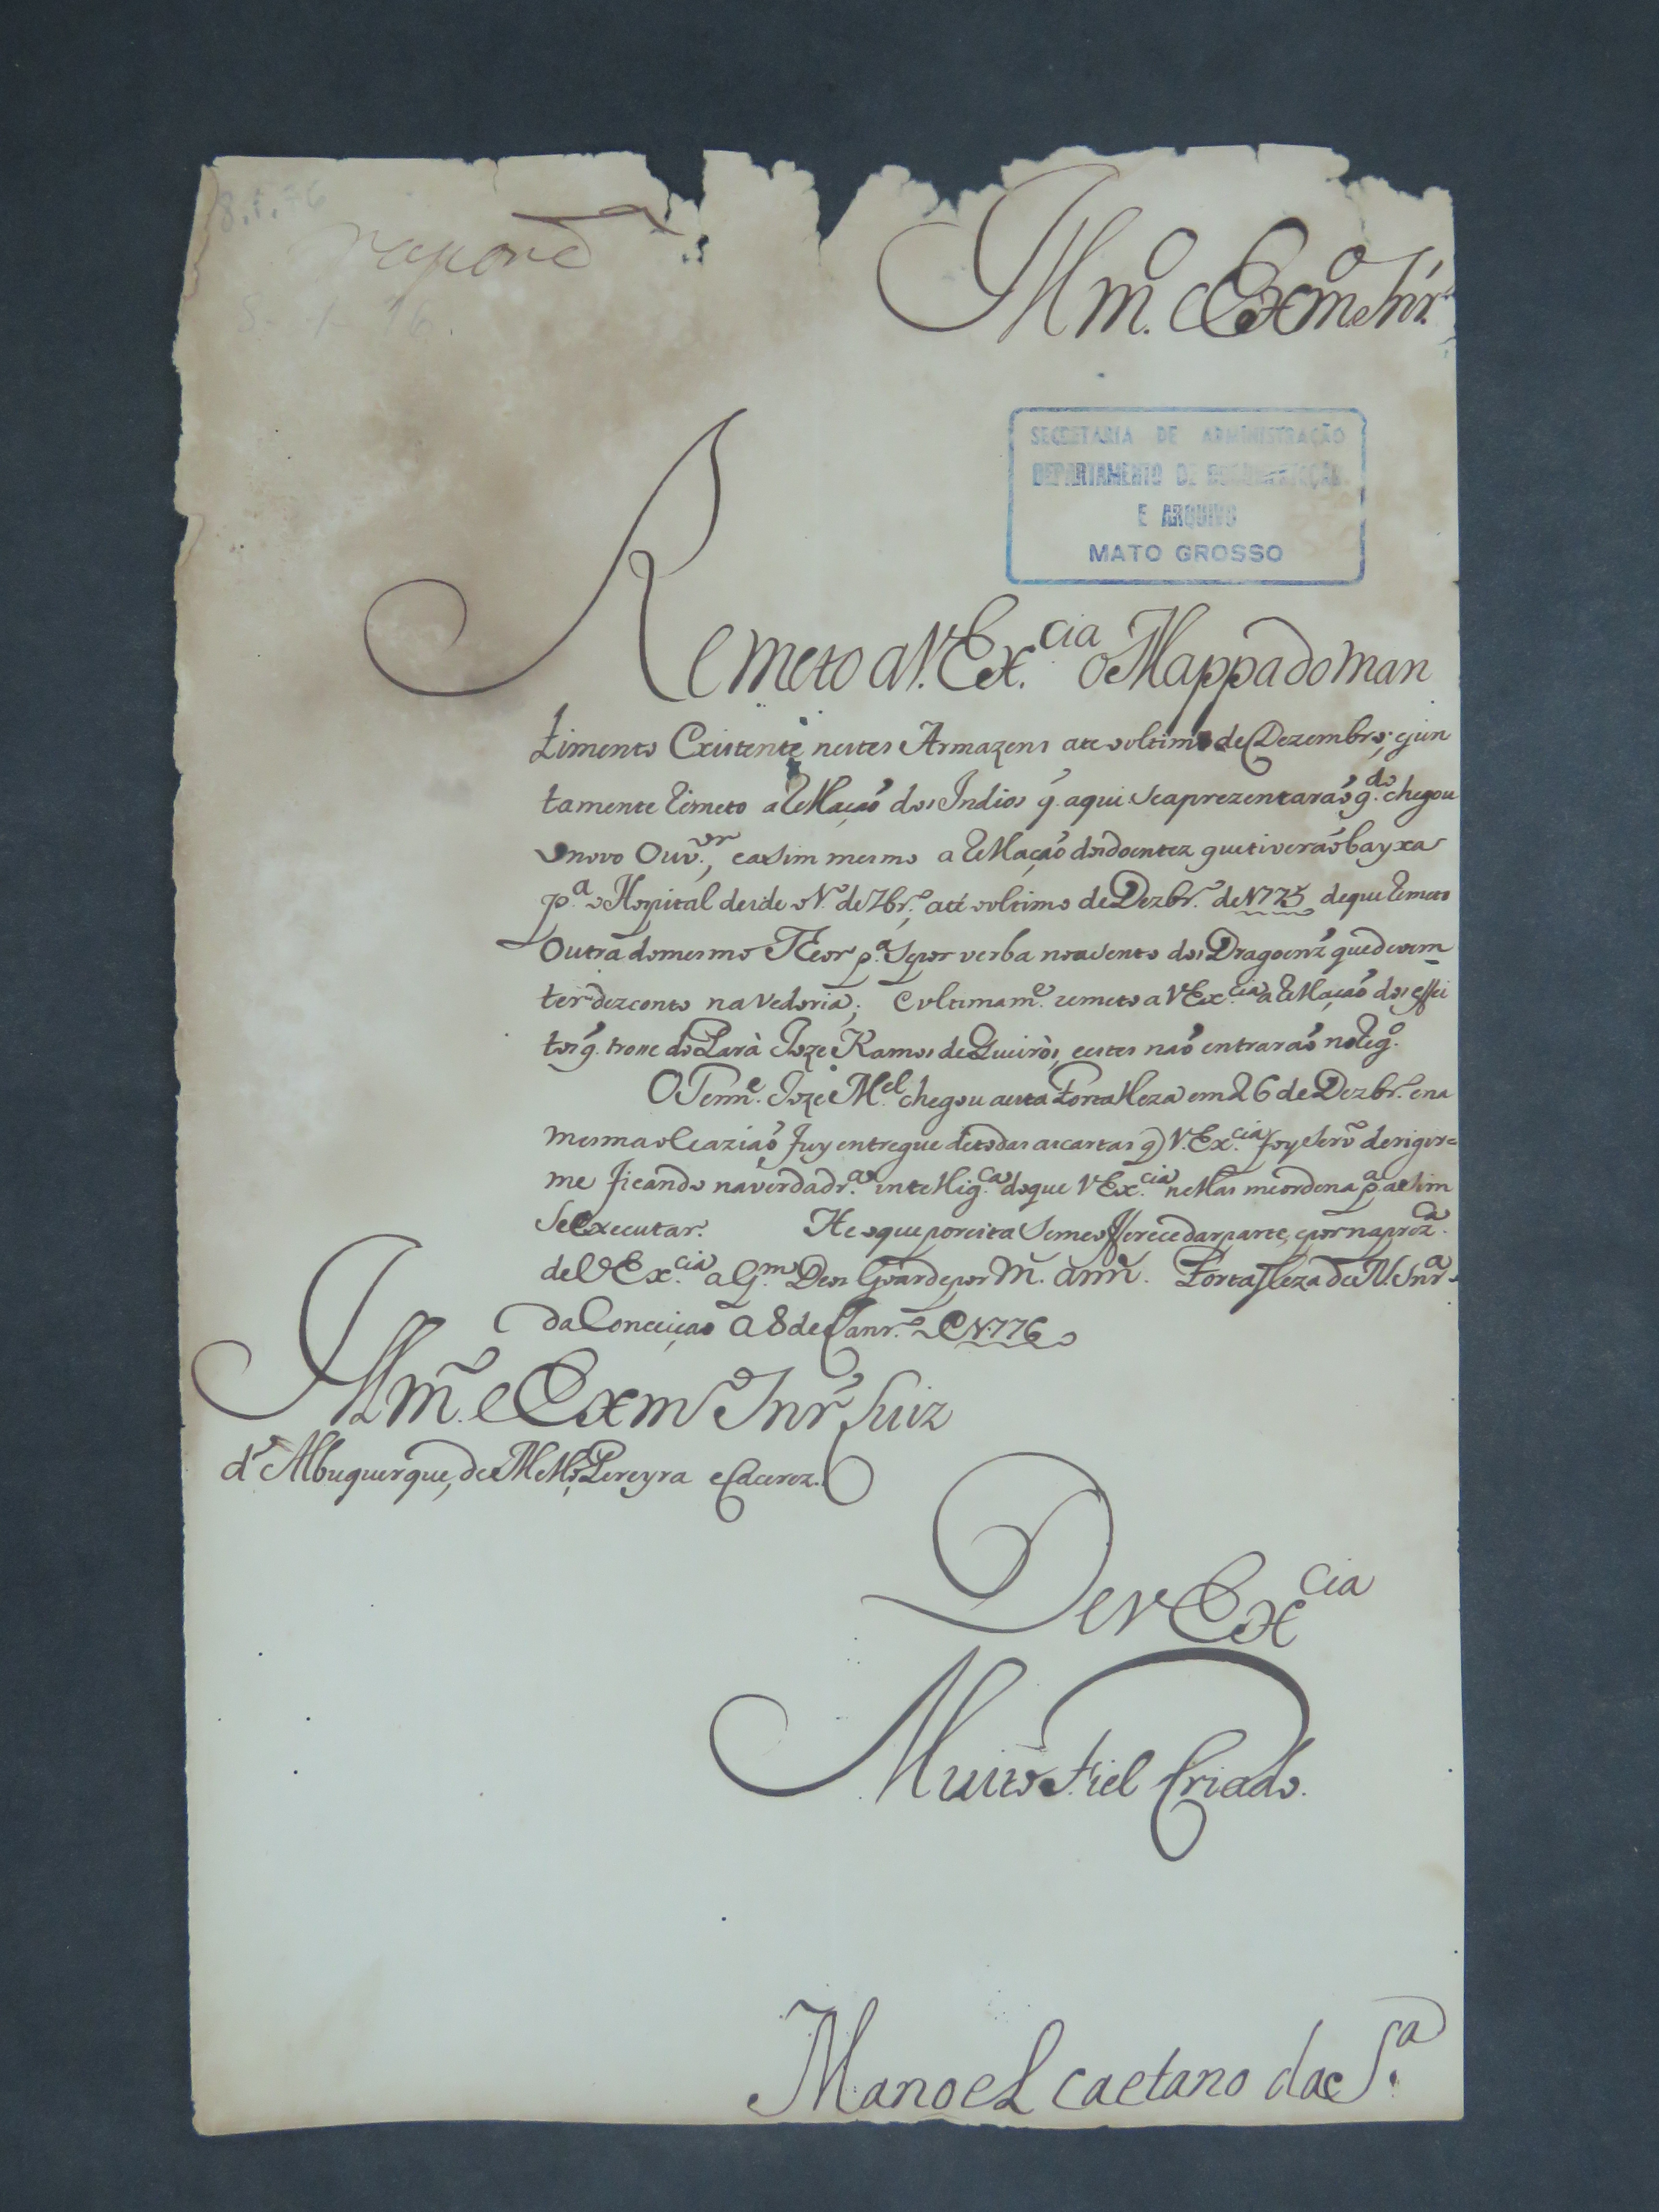 8.1.76
respond.ª
8-1-76
Illm.º e Exm.º Snr.
SECRETARIA DE ADMINISTRAÇÃO
DEPARTAMENTO DE DOCUMENTAÇÃO
E ARQUIVO
MATO GROSSO
Remeto a V. Ex.cia o Mappa do man
timento Existente nestes Armazens ate o ultimo de Dezembro; ejun
tamente Remeto a Rellaçaõ dos Indios q̃ aqui se aprezentaraõ q.do chegou
o novo Ouv.or, easim mesmo a Rellaçaõ dos doentez que tiveraõ bayxa
p.ª o Hospital desde o N. de 7br.º até o ultimo de Dezbr.º de N775 de que Remeto
Outra do mesmo Theor p.ª se por verba no asento dos Dragoenz que devem
ter dezconto na Vedoria; E ultimam.e remeto a V Ex.cia a Rellaçaõ dos effei
tos q̃ troxe do Parà Joze Ramos de Queiròs, eestes naõ entraraõ no Reg.º
O Tenn.e Joze M.el chegou aesta Fortalleza em 26 de Dezbr.º ena
mesma ocaziaõ fuy entregue de todas as cartas q̃ V. Ex.cia foy servº derigir=
me ficando na verdadr.ª intellig.ca do que V Ex.cia nellas me ordena p.ª asim
se executar. He o que por esta se me offerece dar parte, epor na prez.ca
de V Ex.cia a q.m Deos Guarde por m.s ann.s Fortalleza de N. Snr.ª
da Conceiçaõ a 8 de Janr.º de N776
Illm.º e Exm.º Snr. Luiz
d'Albuquerque, de Mello, Pereyra e Cacerez.
De V Ex.cia
Muito Fiel Criado.
Manoel Caetano da S.ª